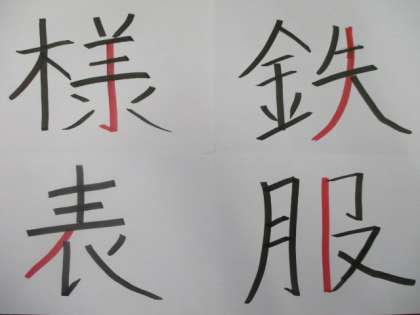 様 鉄
表 服